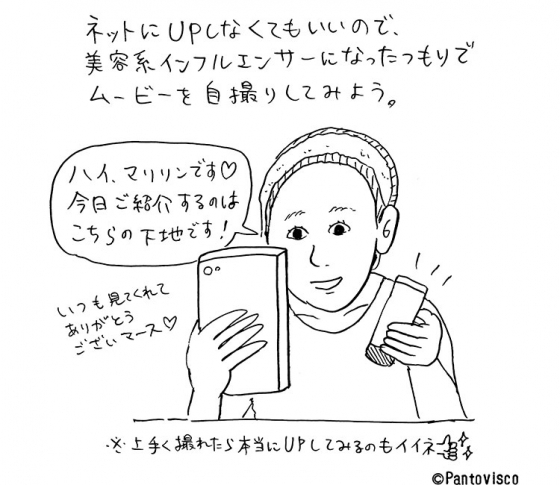 ネットにUPしなくてもいいので、
美容系インフルエンサーになったつもりで
ムービーを自撮りしてみよう。
ハイ、マリリンです♡
今日ご紹介するのは
こちらの下地です！
いつも見てくれて
ありがとう
ございマース♡
※上手く撮れたら本当にUPしてみるのもイイネ👍✨
©Pantovisco